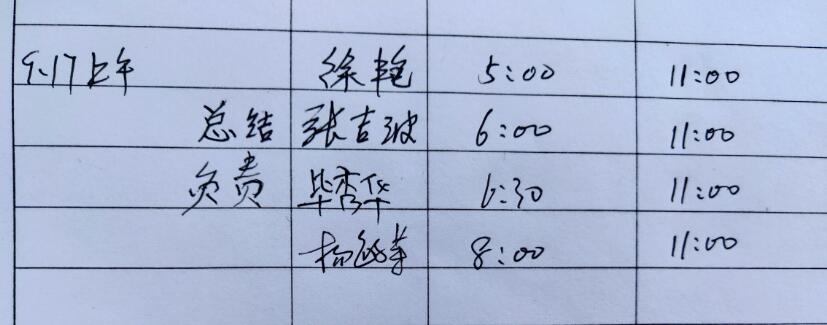 9.17上午 徐艳 5:00 11:00
总结 张吉波 6:00 11:00
负责 毕秀华 6:30 11:00
杨 8:00 11:00